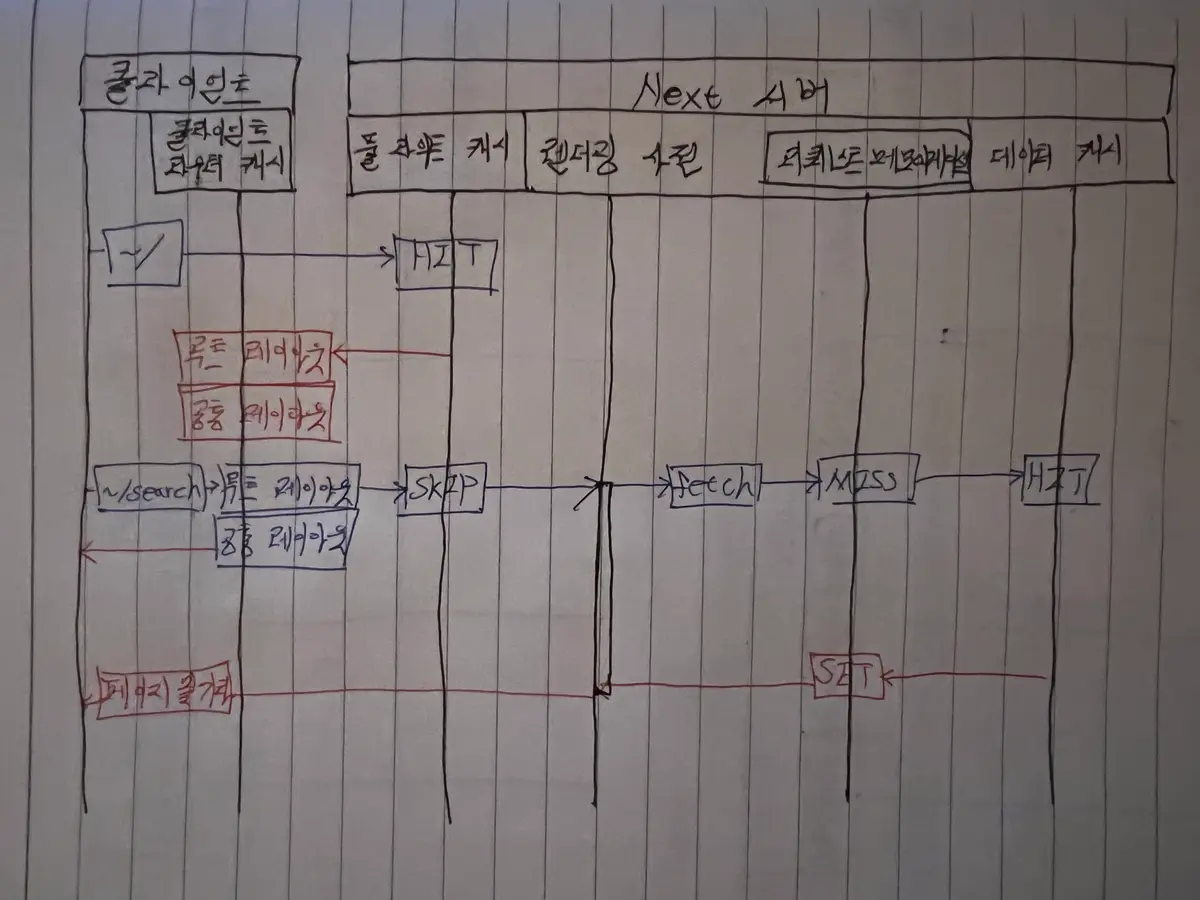 클라이언트
Next 서버
클라이언트
라우터 캐시
풀 라우트 캐시
렌더링 사전
리퀘스트 메모이제이션
데이터 캐시
~/
HIT
루트 레이아웃
공통 레이아웃
~/search
루트 레이아웃
SKIP
fetch
MISS
HIT
공통 레이아웃
SET
페이지 줄거리